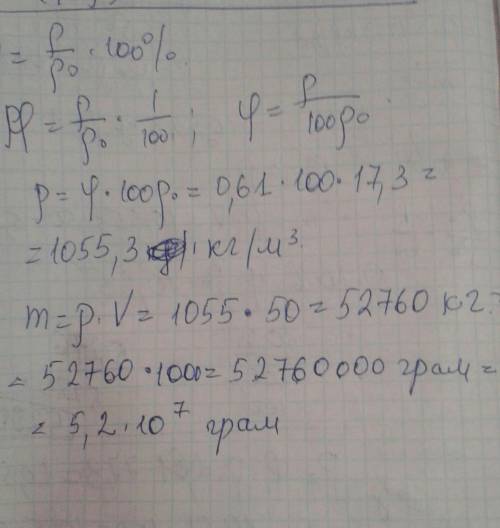 = ρ/ρ₀ · 100%
φ = ρ/ρ₀ · 1/100 ; φ = ρ/100ρ₀
ρ = φ · 100ρ₀ = 0,61 · 100 · 17,3 =
= 1055,3 кг/м³.
m = ρ · V = 1055 · 50 = 52760 кг =
= 52760 · 1000 = 52760000 грам =
= 5,2 · 10⁷ грам